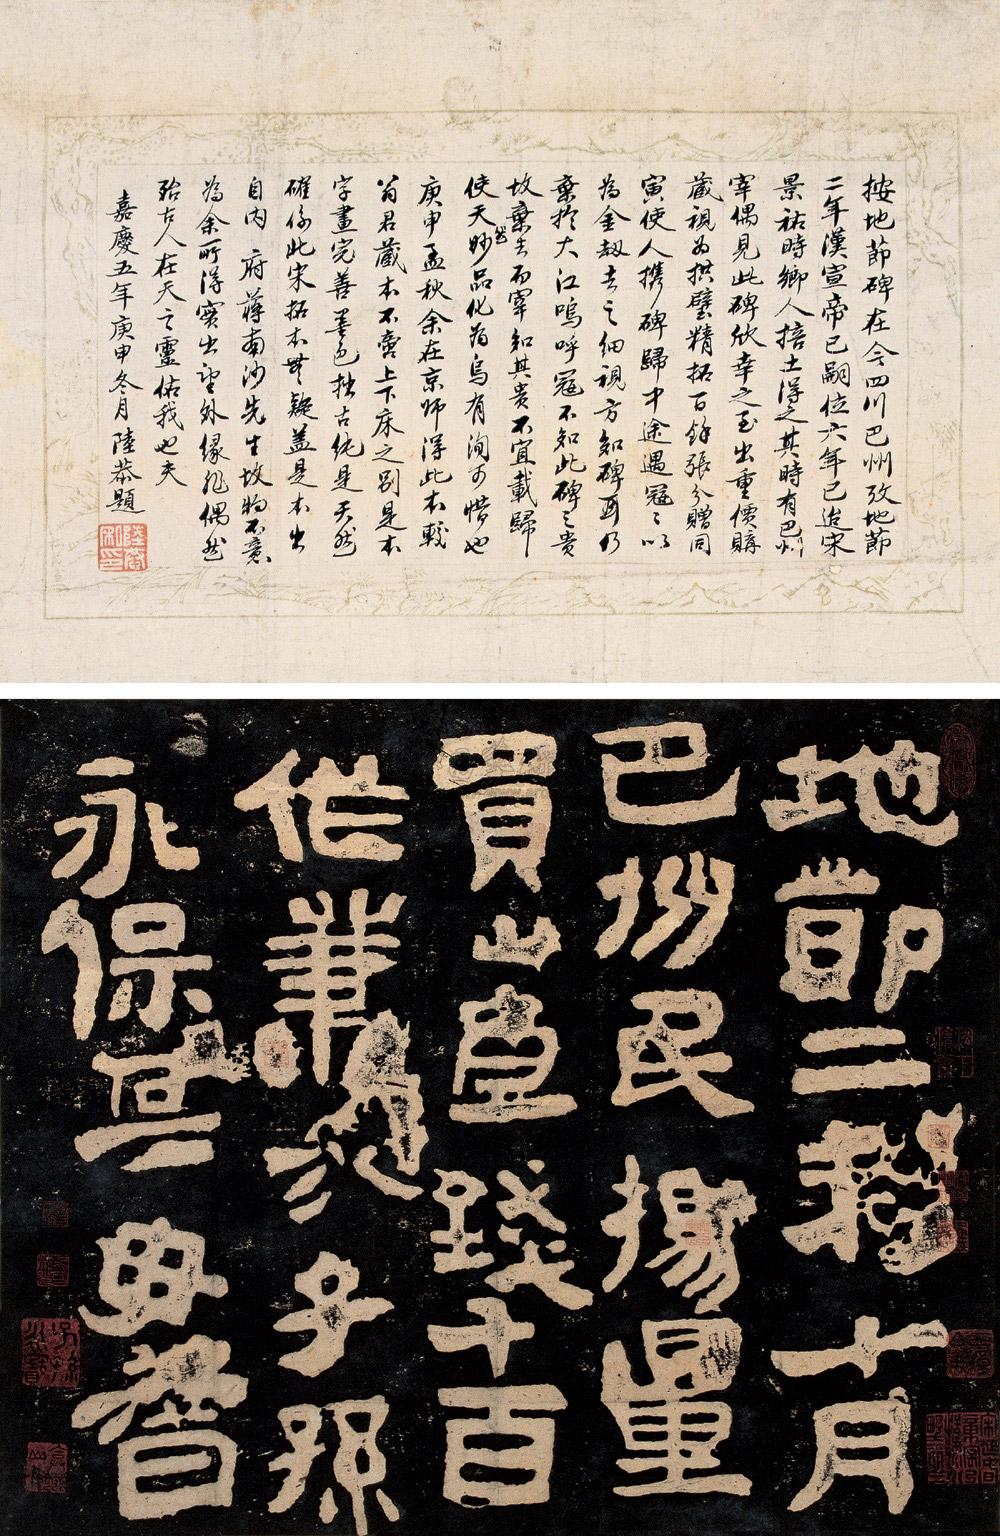 按地節碑在今四川巴州攷地節
二年漢宣帝已嗣位六年已迨宋
景祐時鄉人掊土得之其時有巴州
宰偶見此碑欣幸之至出重價購
藏視為拱璧精拓百餘張分贈同
寅使人携碑歸中途遇寇寇以
為金劫去之细視方知碑耳仍
棄扵大江嗚呼寇不知此碑之貴
故棄去而宰知其貴不宜載歸
使天然妙品化為烏有洵可惜也
庚申孟秋余在京師得此本較
翁君藏本不啻上下床之别是本
字畫完善墨色拙古純是天然
確係此宋拓本無疑盖是本出
自内府蔣南沙先生故物不意
為余所得實出望外緣非偶然
殆古人在天之靈佑我也夫
嘉慶五年庚申冬月陸恭題
陸恭私印
地節二年十月
巴州民楊量
買山直錢千百
作業子孫
永保其毋替